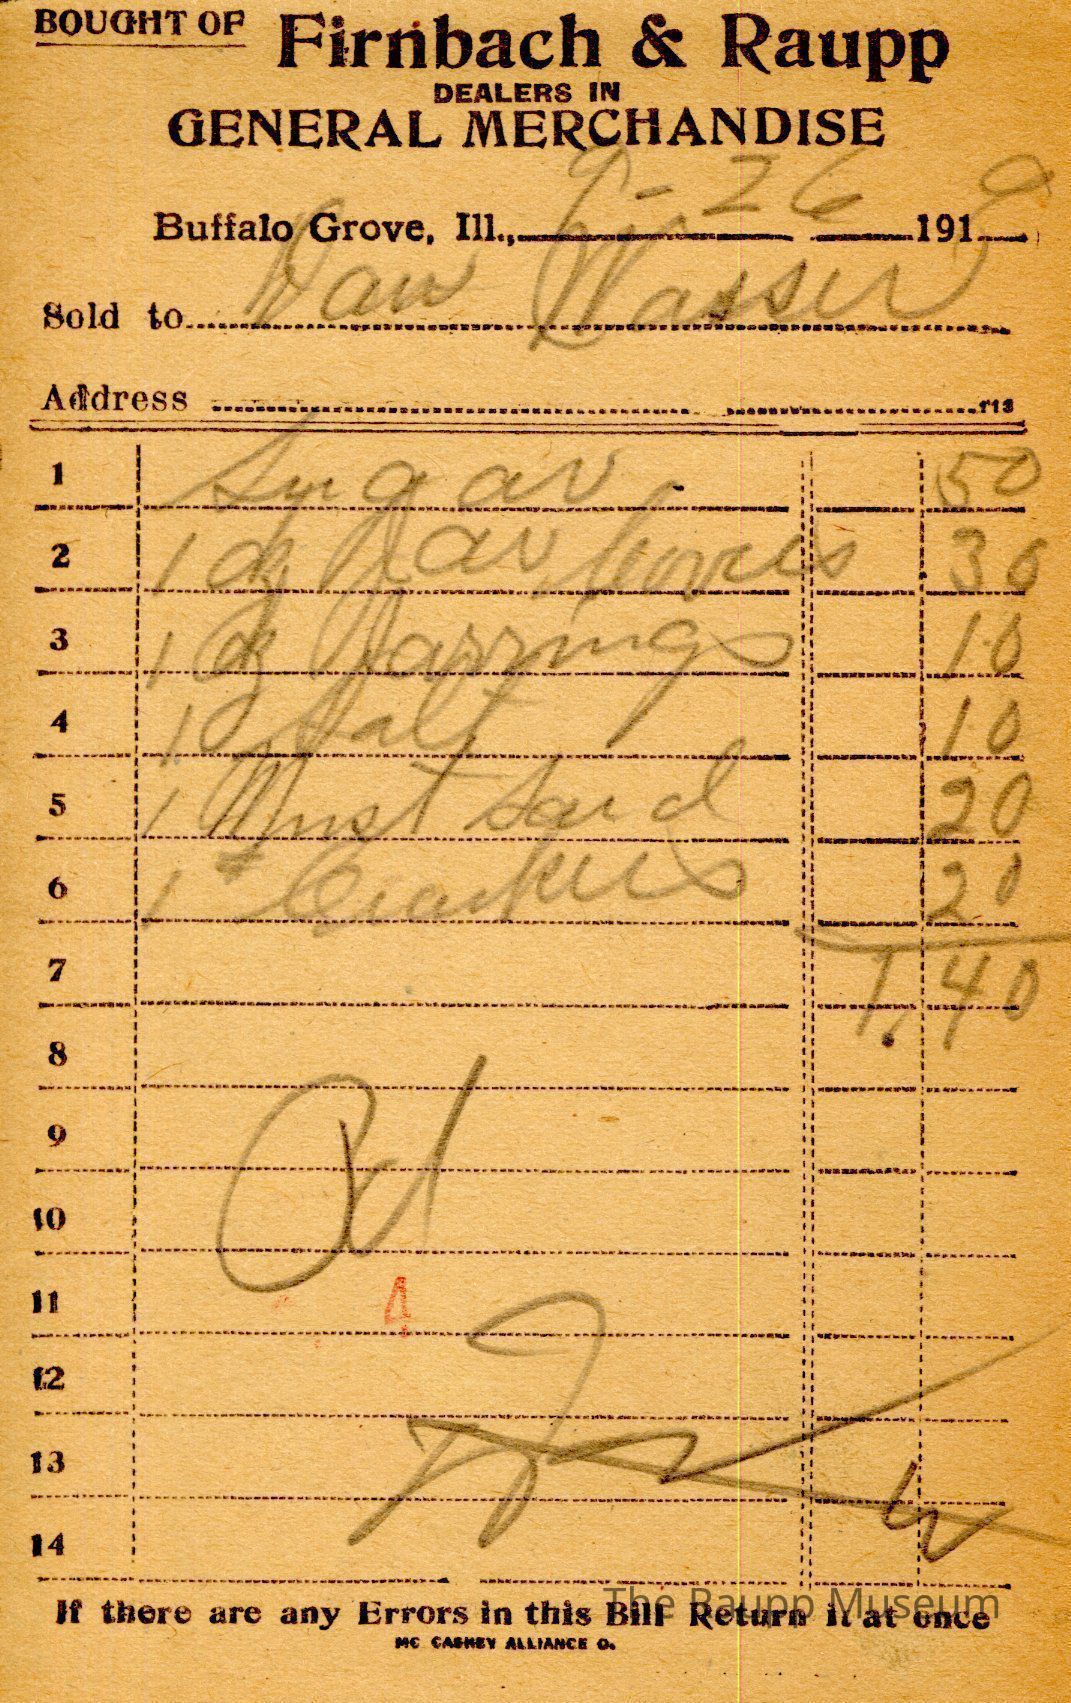 BOUGHT OF Firnbach & Raupp
DEALERS IN
GENERAL MERCHANDISE
Buffalo Grove, Ill., 9-26 1919
Sold to Dan Wasser
Address
113
1 Sugar 50
2 1 dz Jar covers 30
3 1 dz Jar rings 10
4 10 Salt 10
5 1 Must Sard 20
6 1 # Crackers 20
7 1.40
8
9 Pd
10
11 4
12
13
14
If there are any Errors in this Bill Return it at once
MC CASKEY ALLIANCE O.
The Raupp Museum